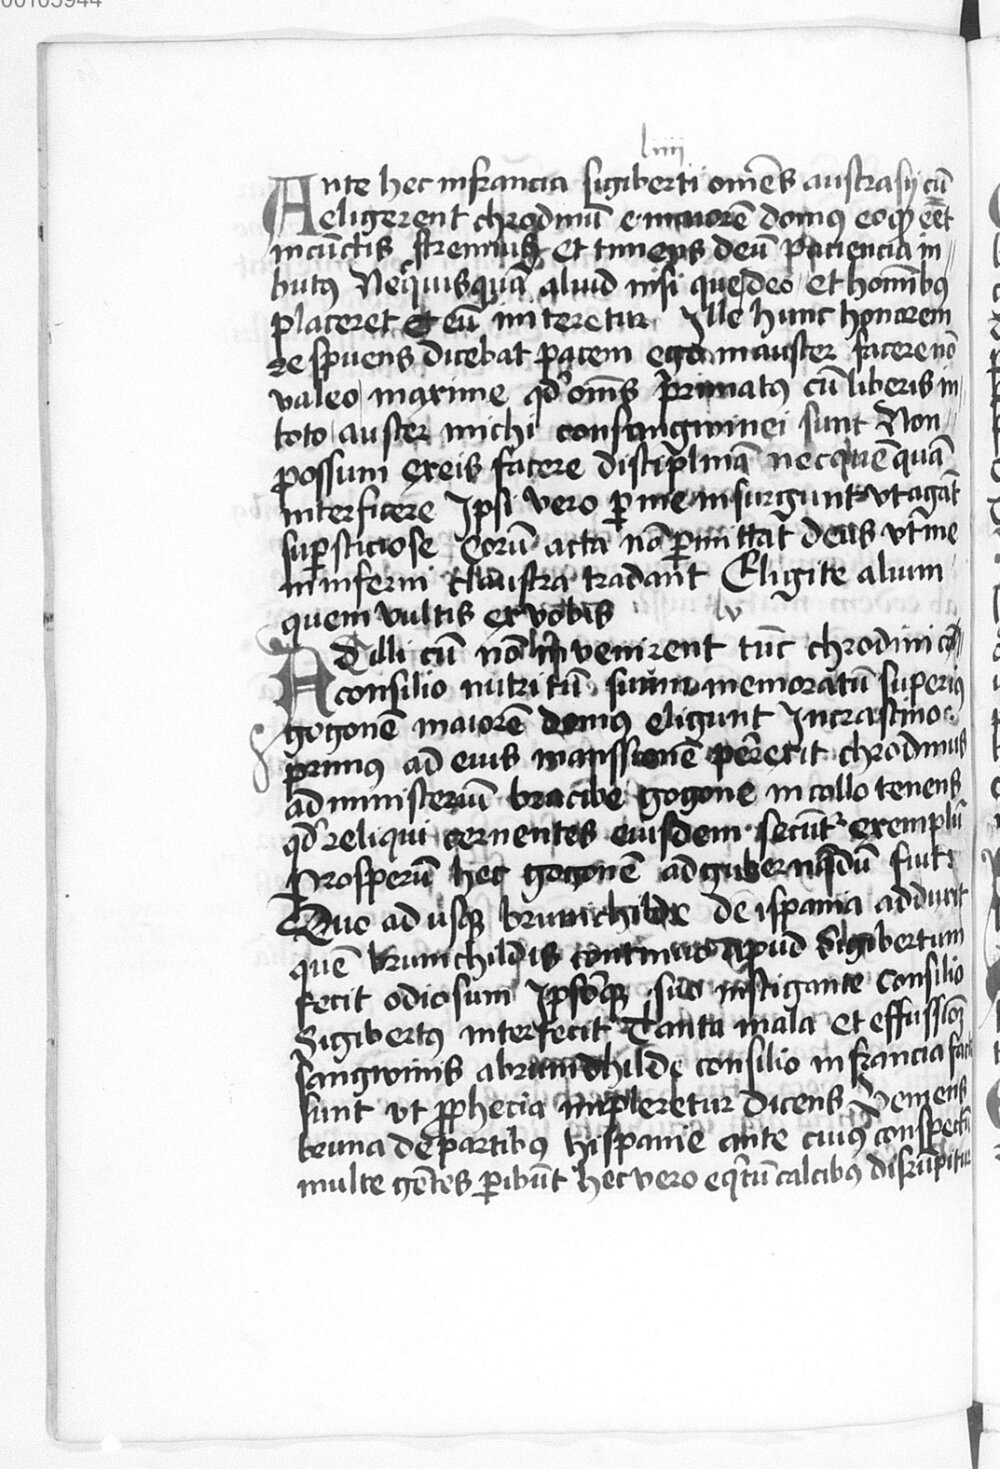 00103944
liiii
Ante hec in francia sigiberti om̄es austrasij cū
eligerent chrodinū maiorē domꝰ eo qꝫ eēt
in cūctis strenuus et timens deū paciencia in
butꝰ Nec quisquā aliud nisi que deo et homībus
placeret et eū imiteretur Ille hunc honorem
respuens dicebat pacem ego in auster facere nō
valeo maxime qd' om̄s primatꝰ cū liberis in
toto auster michi consangwinei sunt Non
possum ex eis facere disciplinā nec quēquā
interficere Ipsi vero ꝑ me insurgunt vt agāt
suꝑsticiose Eorū acta nō ꝑmittat deus vt me
in inferni claustra tradant Eligite alium
quem vultis ex vobis lv
At illi cū nō invenirent tūc chrodini
consilio nutritū suum memoratū superiꝰ
gogonē maiorē domꝰ eligunt In crastino
primꝰ ad eius manssionē perrexit chrodinus
ad ministeriū bracibe gogone in collo tenens
qd' reliqui cernentes eiusdem secūt exemplū
Prosperū hec gogonē ad gubernādū fiut
Quo ad usqꝫ brunichilde de ispania adduxit
quē brunichildis continuo apud Sigibertum
fecit odiosum Ipsoqꝫ suo instigante consilio
Sigibertꝰ interfecit Tanta mala et effussiones
sangwinis a brunichilde consilio in francia facte
sunt vt ꝓphecia impleretur dicens Veniens
bruna de partibꝰ hispanie ante cuiꝰ conspectū
multe gētes ꝑibūt hec vero eq̄tū calcibꝰ disrūpitur